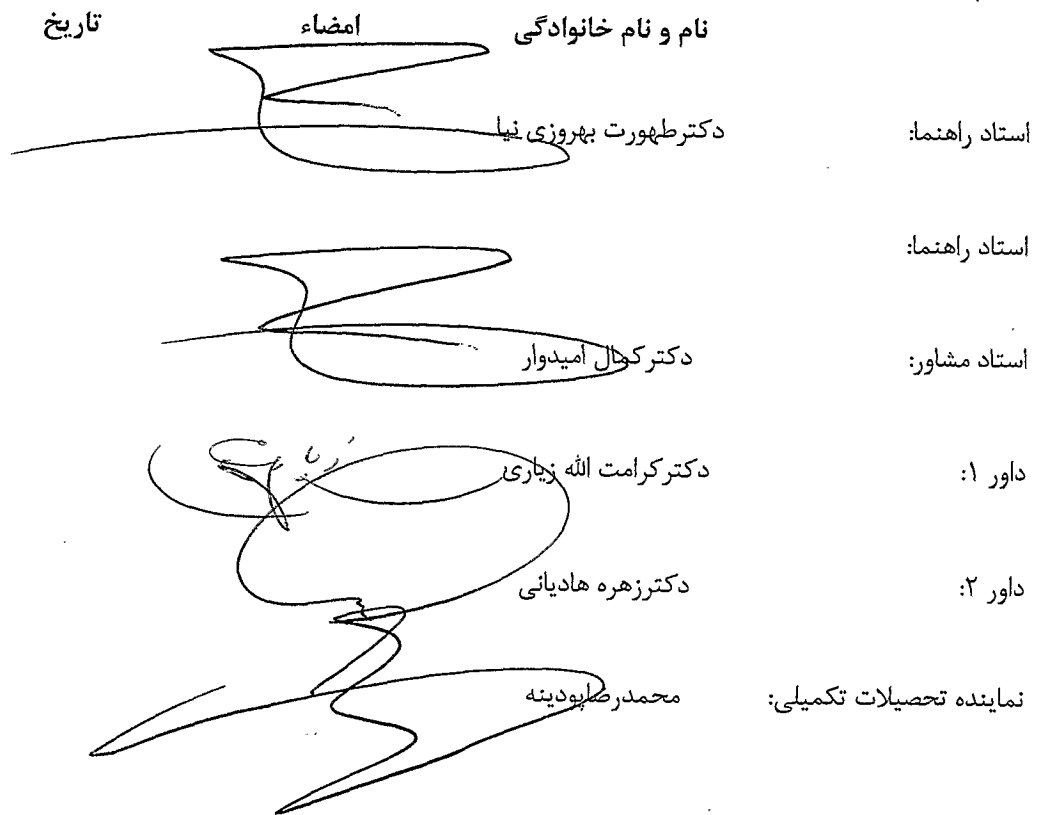 نام و نام خانوادگی امضاء تاریخ
استاد راهنما: دکترطهورت بهروزی نیا
استاد راهنما:
استاد مشاور: دکترکمال امیدوار
داور ۱: دکترکرامت الله زیاری
داور ۲: دکترزهره هادیانی
نماینده تحصیلات تکمیلی: محمدرضاپودینه